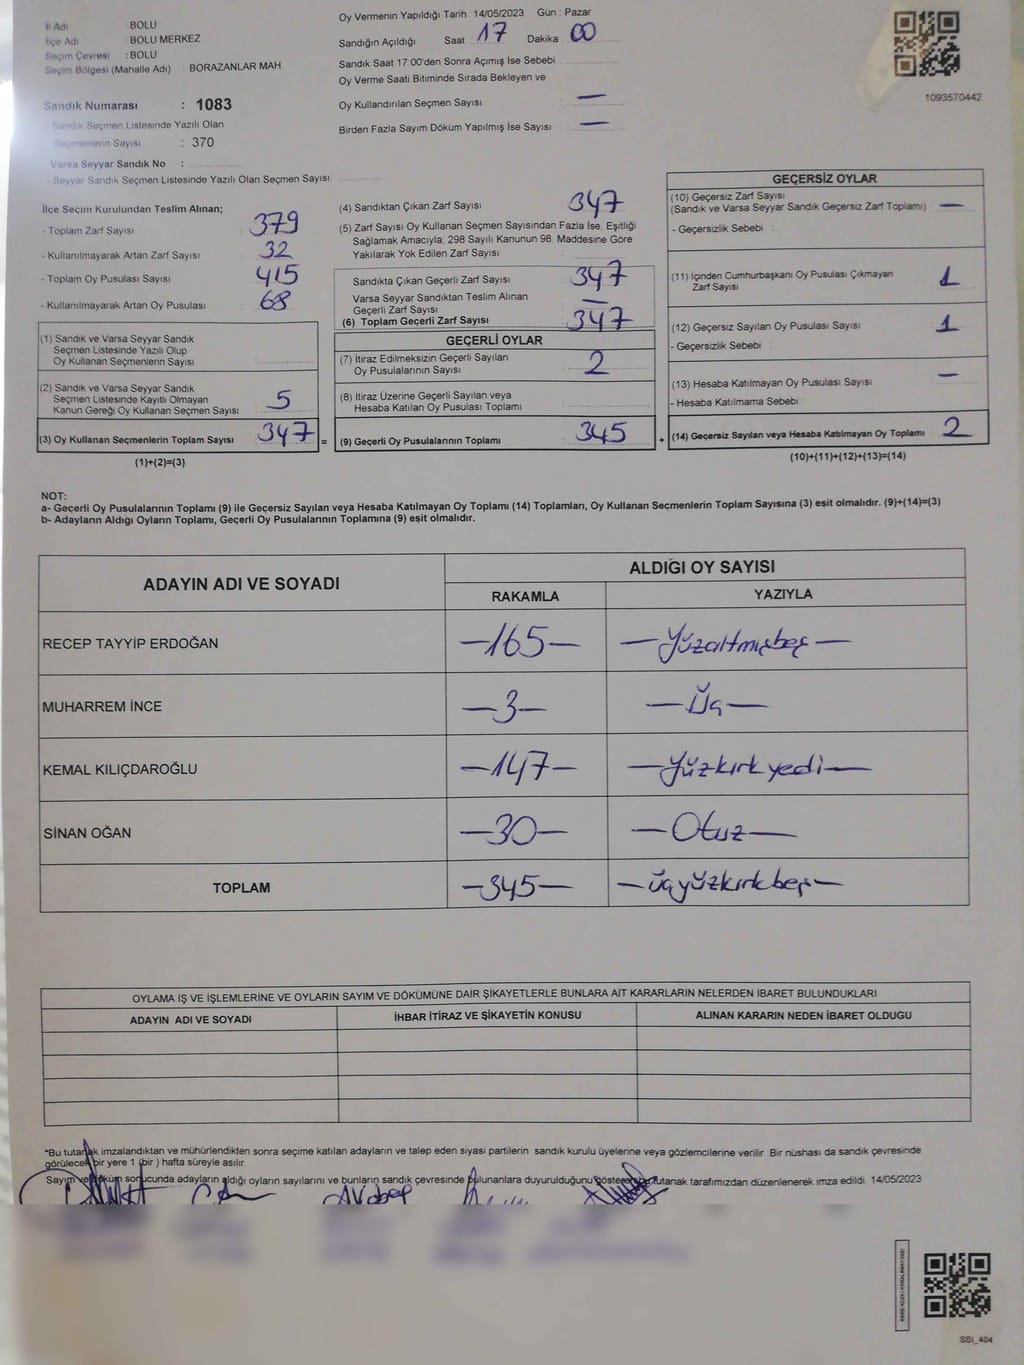 İl Adı : BOLU
İlçe Adı : BOLU MERKEZ
Seçim Çevresi : BOLU
Seçim Bölgesi (Mahalle Adı) : BORAZANLAR MAH
Sandık Numarası : 1083
- Sandık Seçmen Listesinde Yazılı Olan
Seçmenlerin Sayısı : 370
Varsa Seyyar Sandık No :
- Seyyar Sandık Seçmen Listesinde Yazılı Olan Seçmen Sayısı :
Oy Vermenin Yapıldığı Tarih : 14/05/2023 Gün : Pazar
Sandığın Açıldığı Saat 17 Dakika 00
Sandık Saat 17:00'den Sonra Açımış İse Sebebi :
Oy Verme Saati Bitiminde Sırada Bekleyen ve
Oy Kullandırılan Seçmen Sayısı : —
Birden Fazla Sayım Döküm Yapılmış İse Sayısı : —
1093570442
İlçe Seçim Kurulundan Teslim Alınan;
- Toplam Zarf Sayısı : 379
- Kullanılmayarak Artan Zarf Sayısı : 32
- Toplam Oy Pusulası Sayısı : 415
- Kullanılmayarak Artan Oy Pusulası : 68
(1) Sandık ve Varsa Seyyar Sandık
Seçmen Listesinde Yazılı Olup
Oy Kullanan Seçmenlerin Sayısı :
(2) Sandık ve Varsa Seyyar Sandık
Seçmen Listesinde Kayıtlı Olmayan
Kanun Gereği Oy Kullanan Seçmen Sayısı : 5
(3) Oy Kullanan Seçmenlerin Toplam Sayısı : 347 =
(1)+(2)=(3)
(4) Sandıktan Çıkan Zarf Sayısı : 347
(5) Zarf Sayısı Oy Kullanan Seçmen Sayısından Fazla İse, Eşitliği
Sağlamak Amacıyla, 298 Sayılı Kanunun 98. Maddesine Göre
Yakılarak Yok Edilen Zarf Sayısı :
Sandıkta Çıkan Geçerli Zarf Sayısı : 347
Varsa Seyyar Sandıktan Teslim Alınan
Geçerli Zarf Sayısı : —
(6) Toplam Geçerli Zarf Sayısı : 347
GEÇERLİ OYLAR
(7) İtiraz Edilmeksizin Geçerli Sayılan
Oy Pusulalarının Sayısı : 2
(8) İtiraz Üzerine Geçerli Sayılan veya
Hesaba Katılan Oy Pusulası Toplamı :
(9) Geçerli Oy Pusulalarının Toplamı : 345 +
GEÇERSİZ OYLAR
(10) Geçersiz Zarf Sayısı
(Sandık ve Varsa Seyyar Sandık Geçersiz Zarf Toplamı) : —
- Geçersizlik Sebebi :
(11) İçinden Cumhurbaşkanı Oy Pusulası Çıkmayan
Zarf Sayısı : 1
(12) Geçersiz Sayılan Oy Pusulası Sayısı : 1
- Geçersizlik Sebebi :
(13) Hesaba Katılmayan Oy Pusulası Sayısı : —
- Hesaba Katılmama Sebebi :
(14) Geçersiz Sayılan veya Hesaba Katılmayan Oy Toplamı : 2
(10)+(11)+(12)+(13)=(14)
NOT:
a- Geçerli Oy Pusulalarının Toplamı (9) ile Geçersiz Sayılan veya Hesaba Katılmayan Oy Toplamı (14) Toplamları, Oy Kullanan Seçmenlerin Toplam Sayısına (3) eşit olmalıdır. (9)+(14)=(3)
b- Adayların Aldığı Oyların Toplamı, Geçerli Oy Pusulalarının Toplamına (9) eşit olmalıdır.
ADAYIN ADI VE SOYADI ALDIĞI OY SAYISI
RAKAMLA YAZIYLA
RECEP TAYYİP ERDOĞAN —165— —Yüzaltmışbeş—
MUHARREM İNCE —3— —Üç—
KEMAL KILIÇDAROĞLU —147— —Yüzkırkyedi—
SİNAN OĞAN —30— —Otuz—
TOPLAM —345— —üçyüzkırkbeş—
OYLAMA İŞ VE İŞLEMLERİNE VE OYLARIN SAYIM VE DÖKÜMÜNE DAİR ŞİKAYETLERLE BUNLARA AİT KARARLARIN NELERDEN İBARET BULUNDUKLARI
ADAYIN ADI VE SOYADI İHBAR İTİRAZ VE ŞİKAYETİN KONUSU ALINAN KARARIN NEDEN İBARET OLDUGU
*Bu tutanak imzalandıktan ve mühürlendikten sonra seçime katılan adayların ve talep eden siyasi partilerin sandık kurulu üyelerine veya gözlemcilerine verilir. Bir nüshası da sandık çevresinde
görülecek bir yere 1 (bir ) hafta süreyle asılır.
Sayım ve döküm sonucunda adayların aldığı oyların sayılarını ve bunların sandık çevresinde bulunanlara duyurulduğunu gösteren bu tutanak tarafımızdan düzenlenerek imza edildi. 14/05/2023
SSI_404